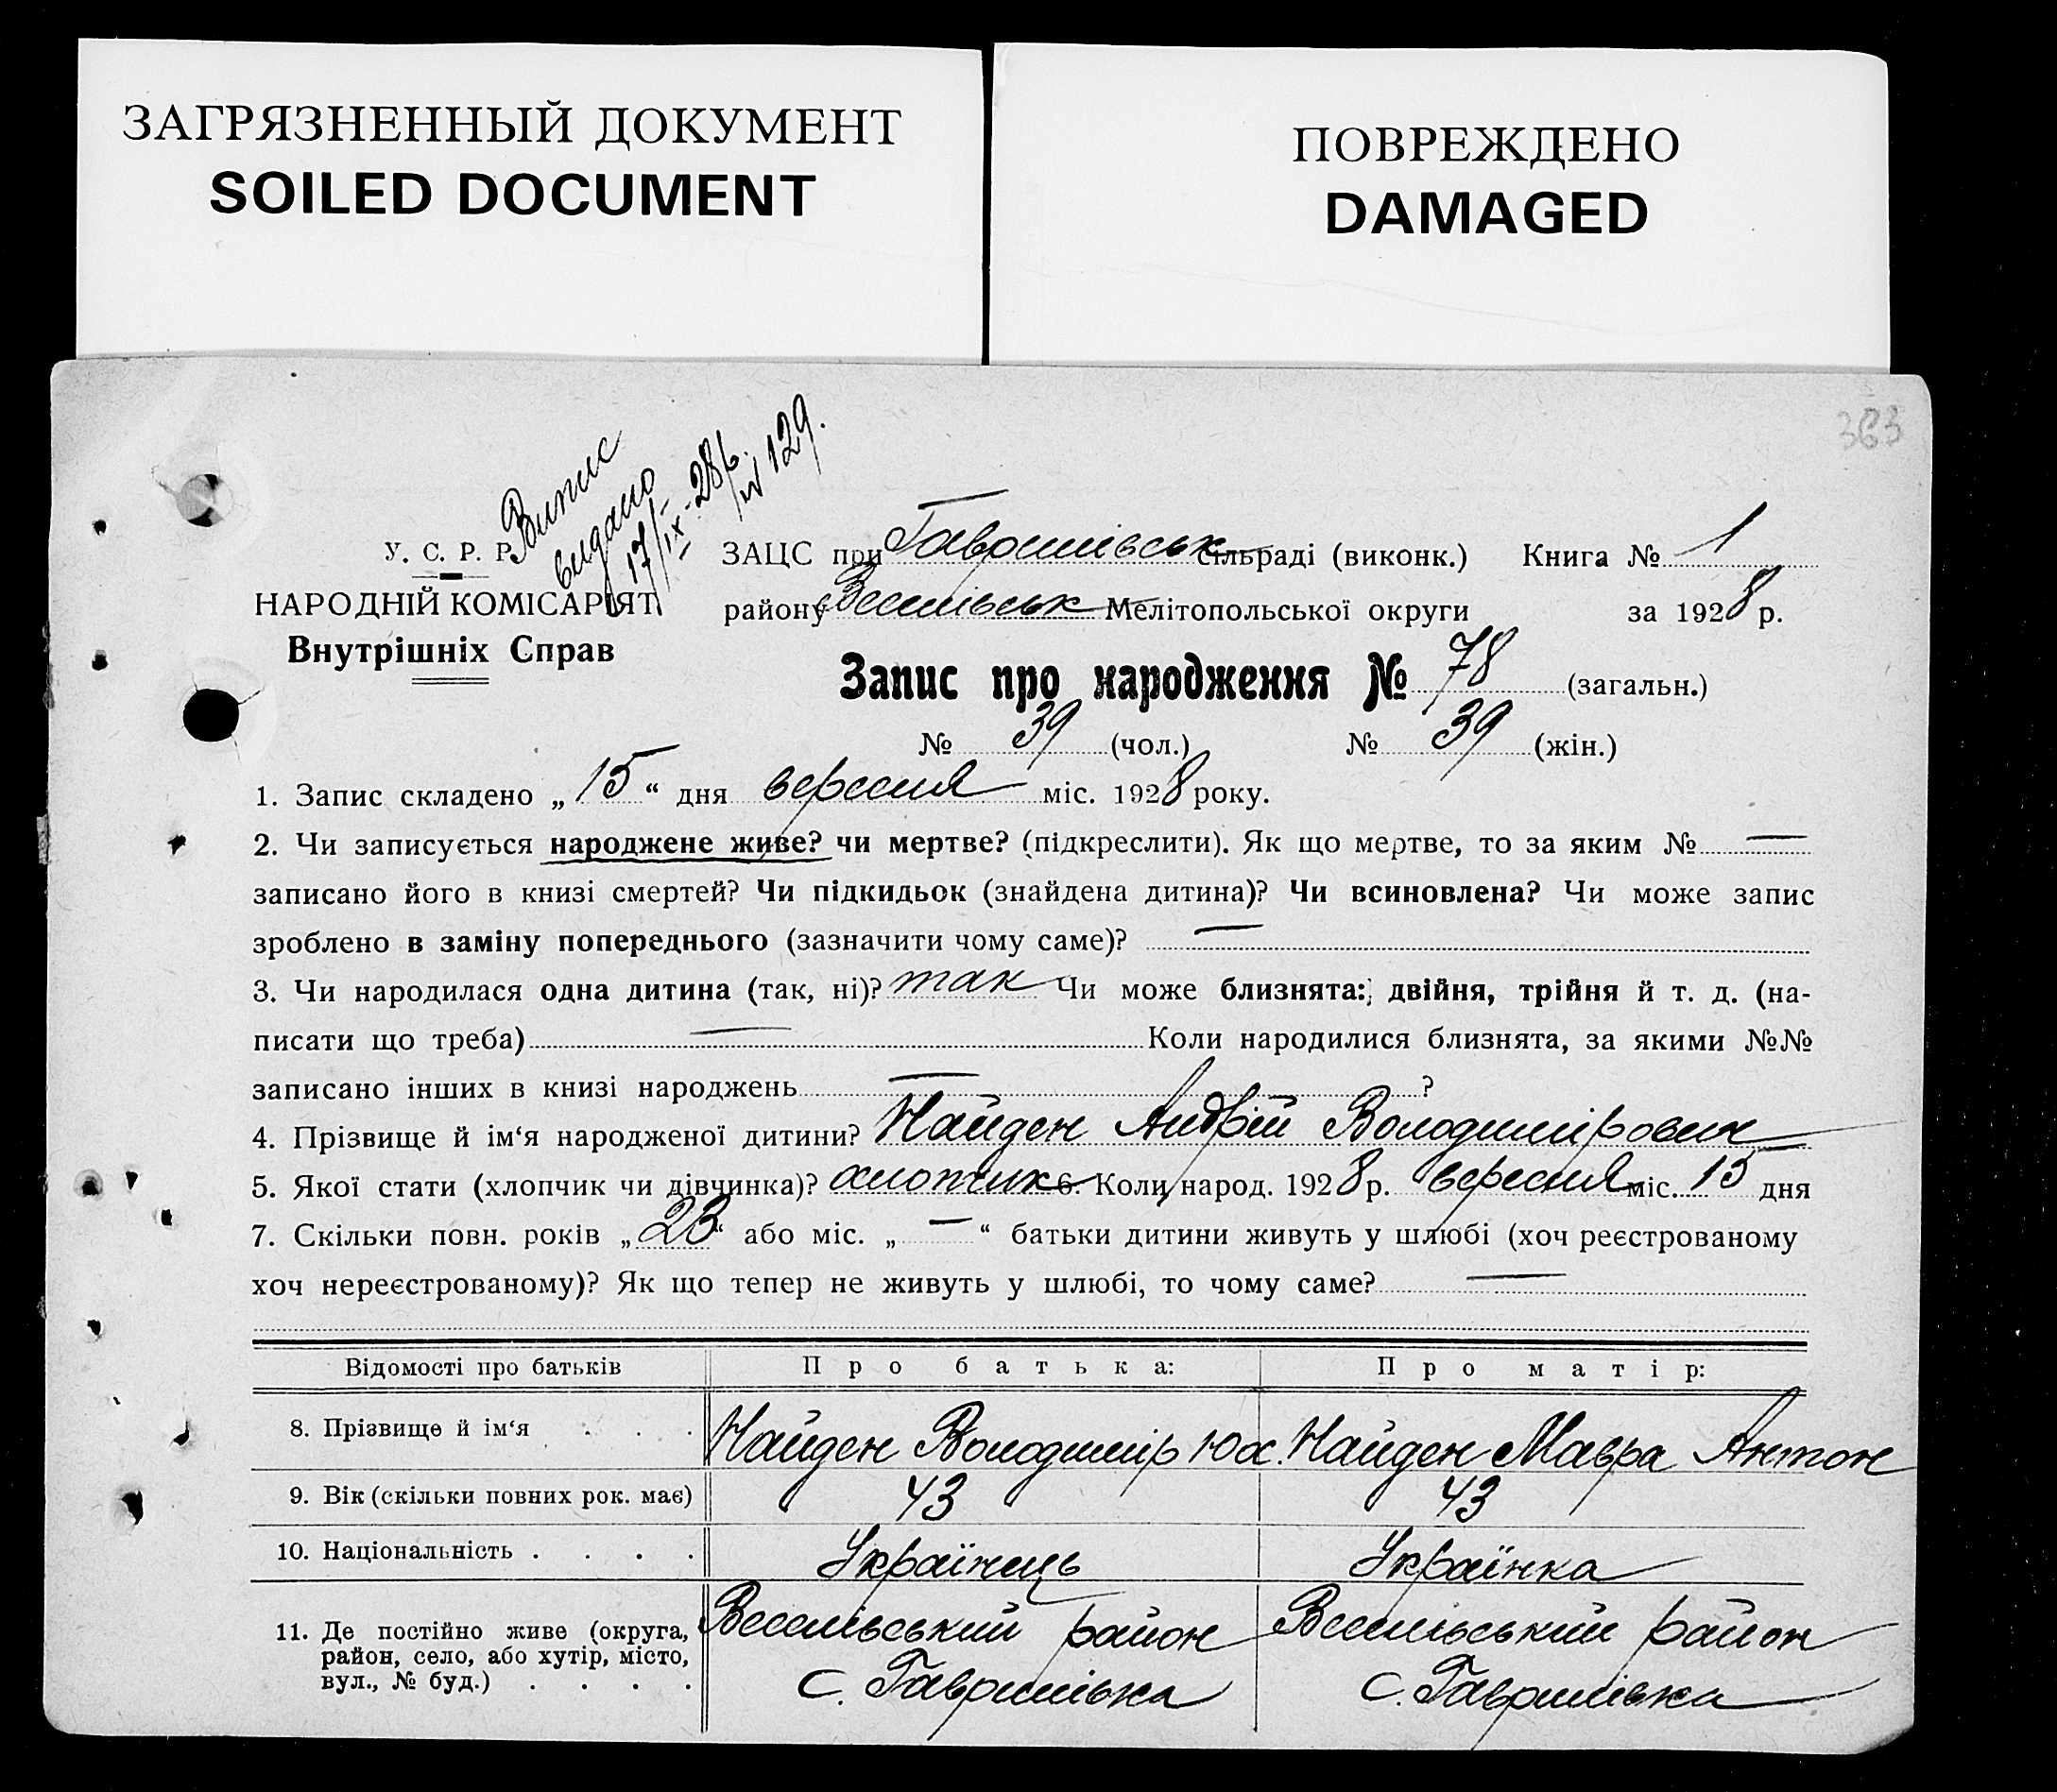 ЗАГРЯЗНЕННЫЙ ДОКУМЕНТ
SOILED DOCUMENT
ПОВРЕЖДЕНО
DAMAGED
363
Випис
видано
17/IX-28 р.
№ 129.
У. С. Р. Р.
НАРОДНІЙ КОМІСАРІЯТ
Внутрішніх Справ
ЗАЦС при Гаврилівськ сільраді (виконк.) Книга № 1
району Веселівськ Мелітопольської округи за 1928 р.
Запис про народження № 78 (загальн.)
№ 39 (чол.) № 39 (жін.)
1. Запис складено „ 15 “ дня вересня міс. 1928 року.
2. Чи записується народжене живе? чи мертве? (підкреслити). Як що мертве, то за яким № —
записано його в книзі смертей? Чи підкидьок (знайдена дитина)? Чи всиновлена? Чи може запис
зроблено в заміну попереднього (зазначити чому саме)? —
3. Чи народилася одна дитина (так, ні)? так Чи може близнята: двійня, трійня й т. д. (на-
писати що треба) — Коли народилися близнята, за якими №№
записано інших в книзі народжень — ?
4. Прізвище й ім‘я народженої дитини? Найден Андрій Володимірович
5. Якої стати (хлопчик чи дівчинка)? хлопчик 6. Коли народ. 1928 р. вересня міс. 15 дня
7. Скільки повн. років „ 23 “ або міс. „ — “ батьки дитини живуть у шлюбі (хоч реєстрованому
хоч нереєстрованому)? Як що тепер не живуть у шлюбі, то чому саме? —
Відомості про батьків Про батька: Про матір:
8. Прізвище й ім‘я . . . Найден Володимір Юх. Найден Мавра Антон
9. Вік (скільки повних рок. має) 43 43
10. Національність . . . . Українець Українка
11. Де постійно живе (округа, район, село, або хутір, місто, вул., № буд.) . . . . Веселівський район Веселівський район
с. Гаврилівка с. Гаврилівка